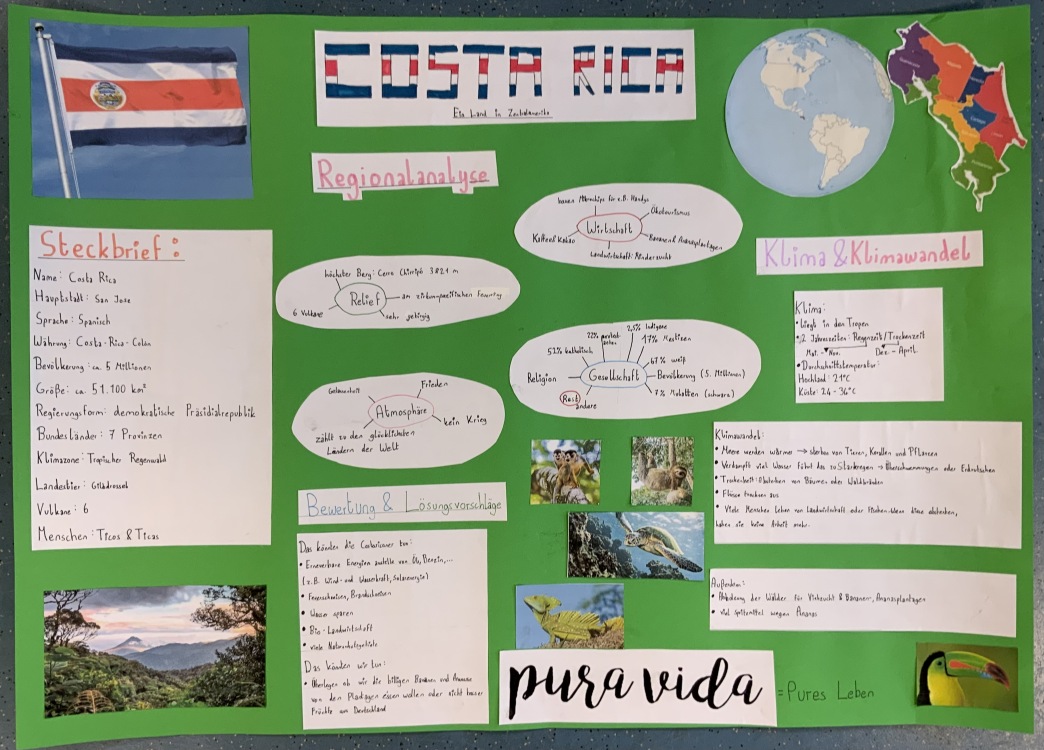 COSTA RICA
Ein Land in Zentralamerika
Regionalanalyse
Steckbrief:
Name: Costa Rica
Hauptstadt: San Jose
Sprache: Spanisch
Währung: Costa-Rica-Colón
Bevölkerung: ca. 5 Millionen
Größe: ca. 51.100 km²
Regierungsform: demokratische Präsidialrepublik
Bundesländer: 7 Provinzen
Klimazone: Tropischer Regenwald
Landestier: Gilbdrossel
Vulkane: 6
Menschen: Ticos & Ticas
höchster Berg: Cerro Chirripó 3821 m
Relief
am zirkumpazifischen Feuerring
6 Vulkane
sehr gebirgig
Gelassenheit
Frieden
Atmosphäre
kein Krieg
zählt zu den glücklichsten
Ländern der Welt
bauen Mikrochips für z.B. Handys
Ökotourismus
Wirtschaft
Kaffee & Kakao
Bananen & Ananasplantagen
Landwirtschaft: Rinderzucht
22% protest-
2,5% Indigene
17% Mestizen
67% weiß
Religion
Gesellschaft
Bevölkerung (5. Millionen)
7% Mulatten (schwarz)
Rest
andere
Bewertung & Lösungsvorschläge
Das könnten die Costaricaner tun:
• Erneuerbare Energien anstelle von Öl, Benzin,...
(z.B. Wind- und Wasserkraft, Solarenergie)
• Feuerschneisen, Brandschneisen
• Wasser sparen
• Bio-Landwirtschaft
• viele Naturschutzgebiete
Das könnten wir tun:
• Überlegen ob wir die billigen Bananen und Ananase
von den Plantagen essen wollen oder nicht besser
Früchte aus Deutschland
Klima & Klimawandel
Klima:
• Liegt in den Tropen
• 2 Jahreszeiten: Regenzeit/Trockenzeit
Mai - Nov.
Dez. - April
• Durchschnittstemperatur:
Hochland: 21°C
Küste: 24 - 36°C
Klimawandel:
• Meere werden wärmer → sterben von Tieren, Korallen und Pflanzen
• Verdampft viel Wasser führt das zu Starkregen → Überschwemmungen oder Erdrutschen
• Trockenheit: Absterben von Bäumen oder Waldbränden
• Flüsse trocknen aus
• Viele Menschen leben von Landwirtschaft oder Fischen. Wenn diese absterben,
haben sie keine Arbeit mehr.
Außerdem:
• Abholzung der Wälder für Viehzucht & Bananen-, Ananasplantagen
• viel Spritzmittel wegen Ananas
pura vida
= Pures Leben